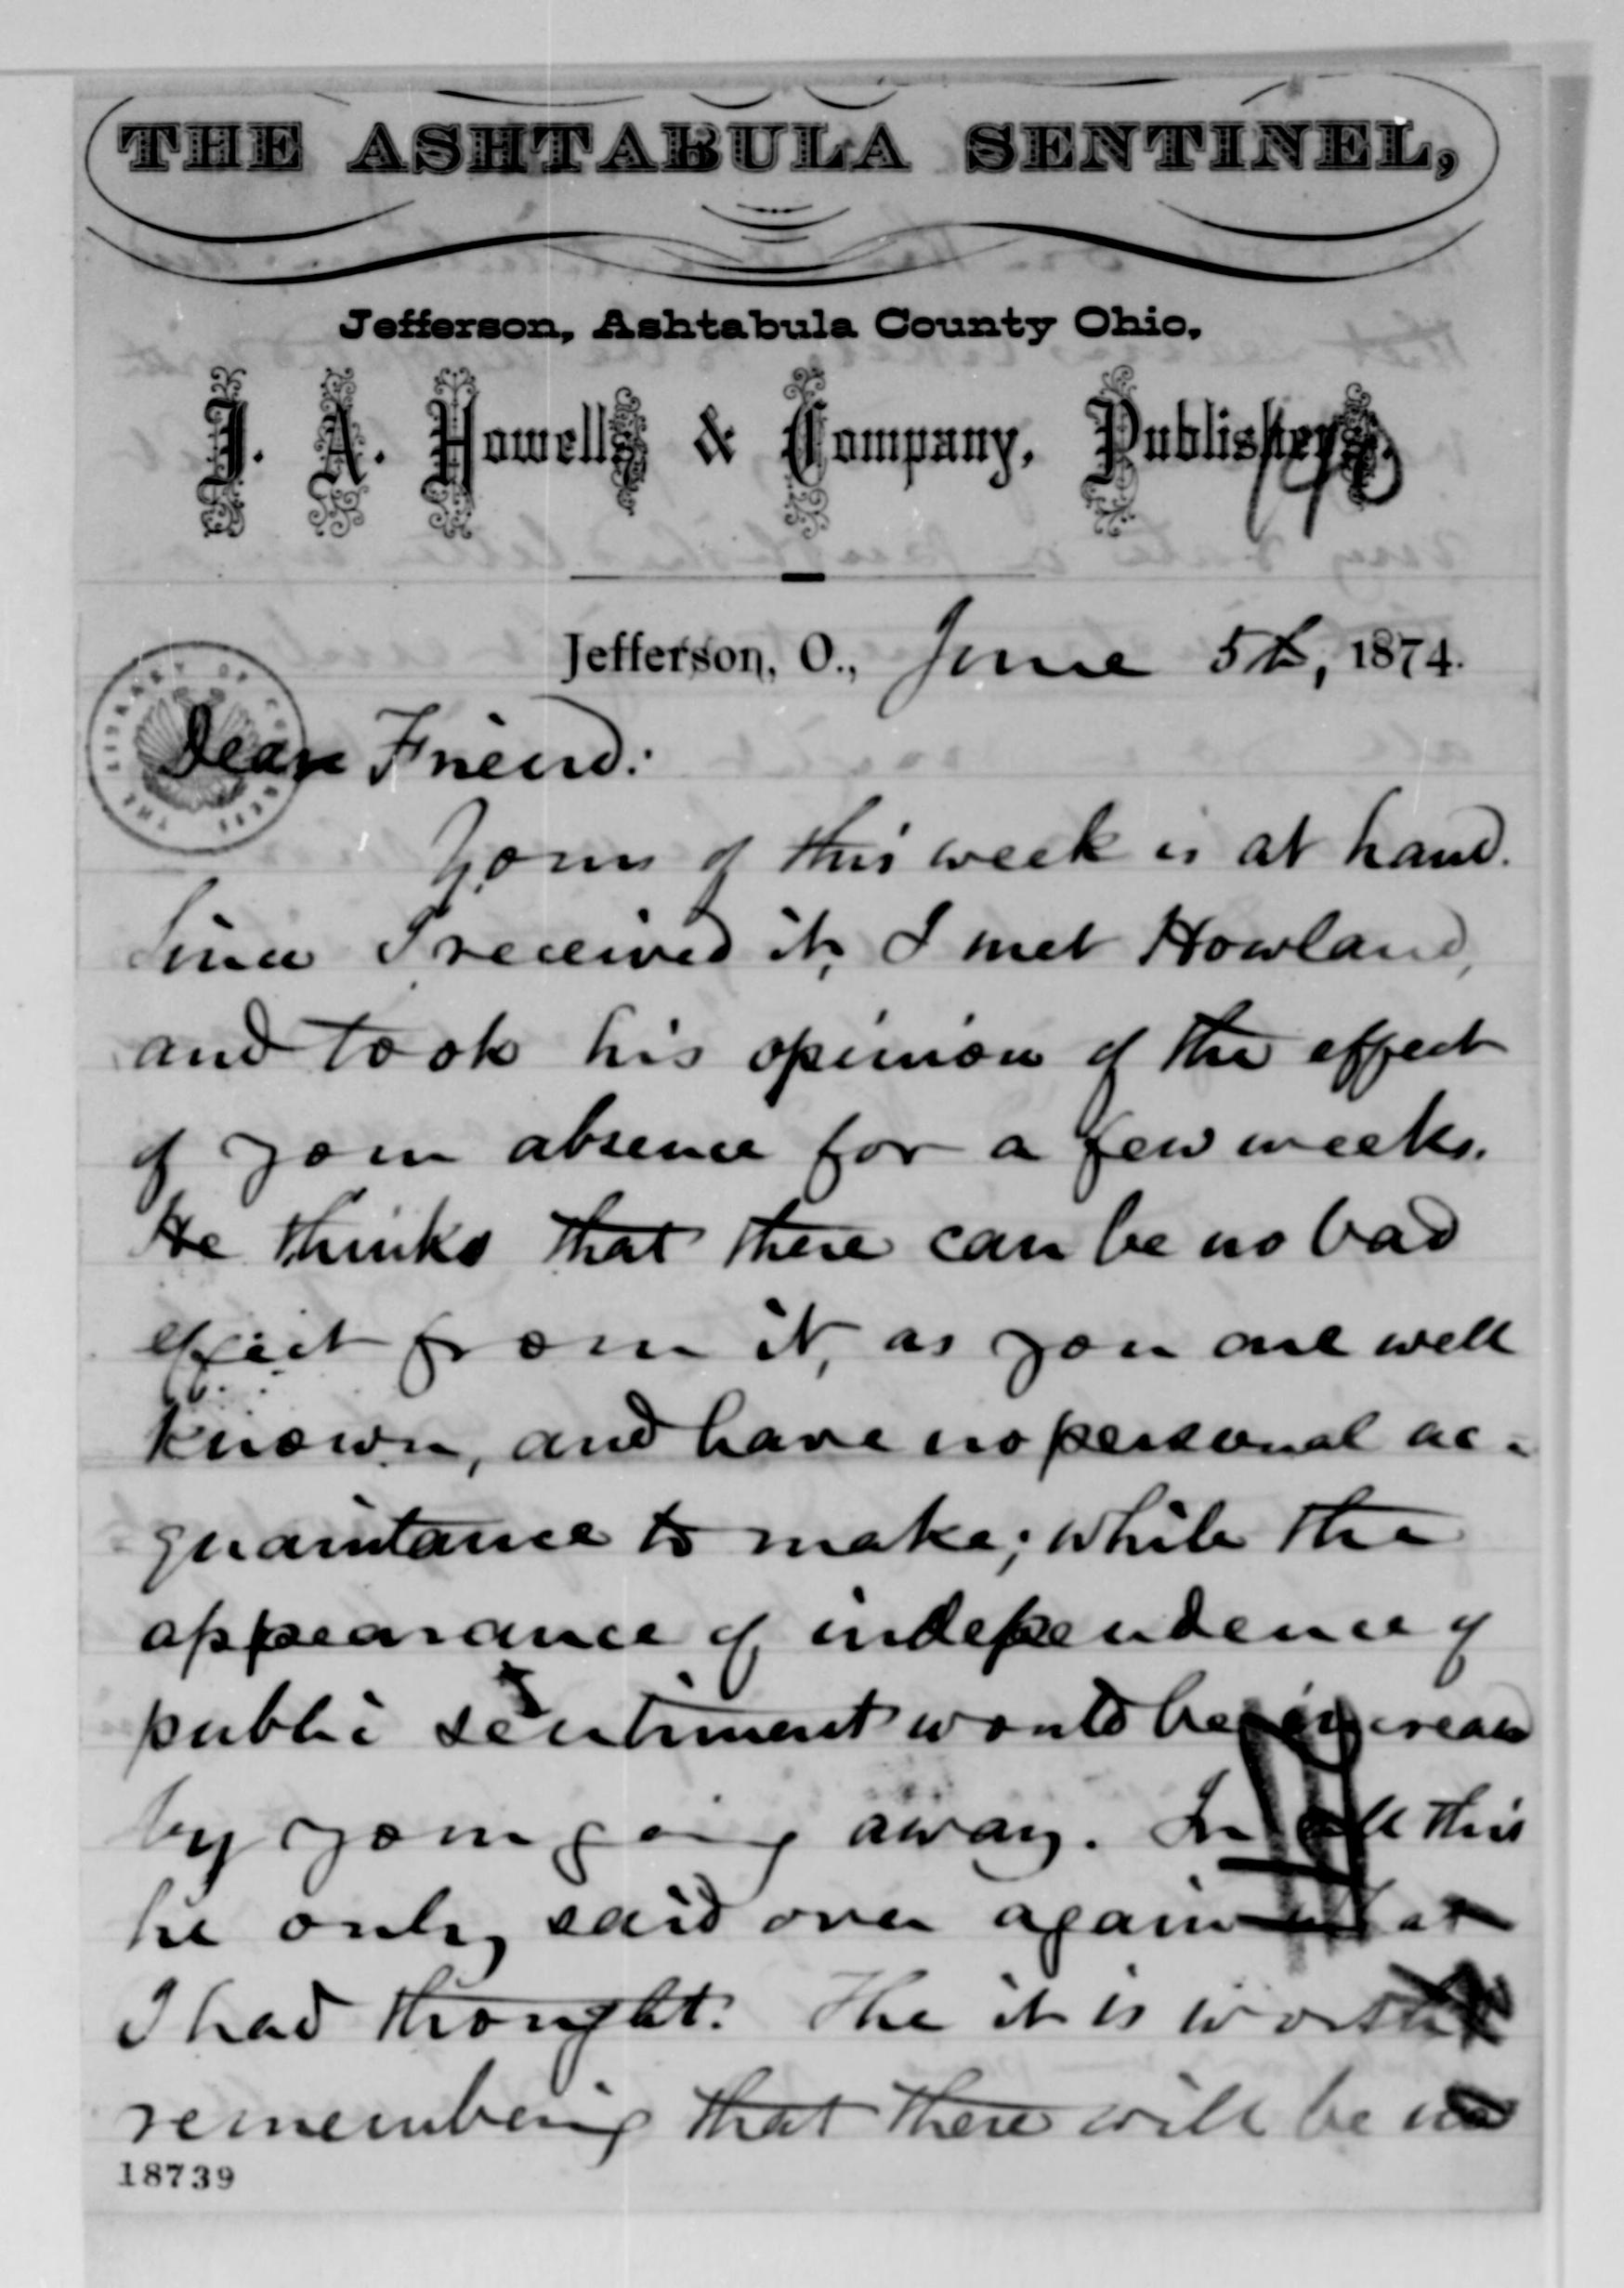 THE ASHTABULA SENTINEL,
Jefferson, Ashtabula County Ohio,
J. A. Howells & Company, Publishers.
Jefferson, O., June 5th, 1874.
THE LIBRARY OF CONGRESS
Dear Friend:
Yours of this week is at hand.
Since I received it, I met Howland,
and took his opinion of the effect
of your absence for a few weeks.
He thinks that there can be no bad
effect from it, as you are well
known, and have no personal ac-
quaintance to make; while the
appearance of independence of
public sentiment would be increased
by your going away. In all this
he only said over again what
I had thought. The it is worth
remembering that there will be no
18739